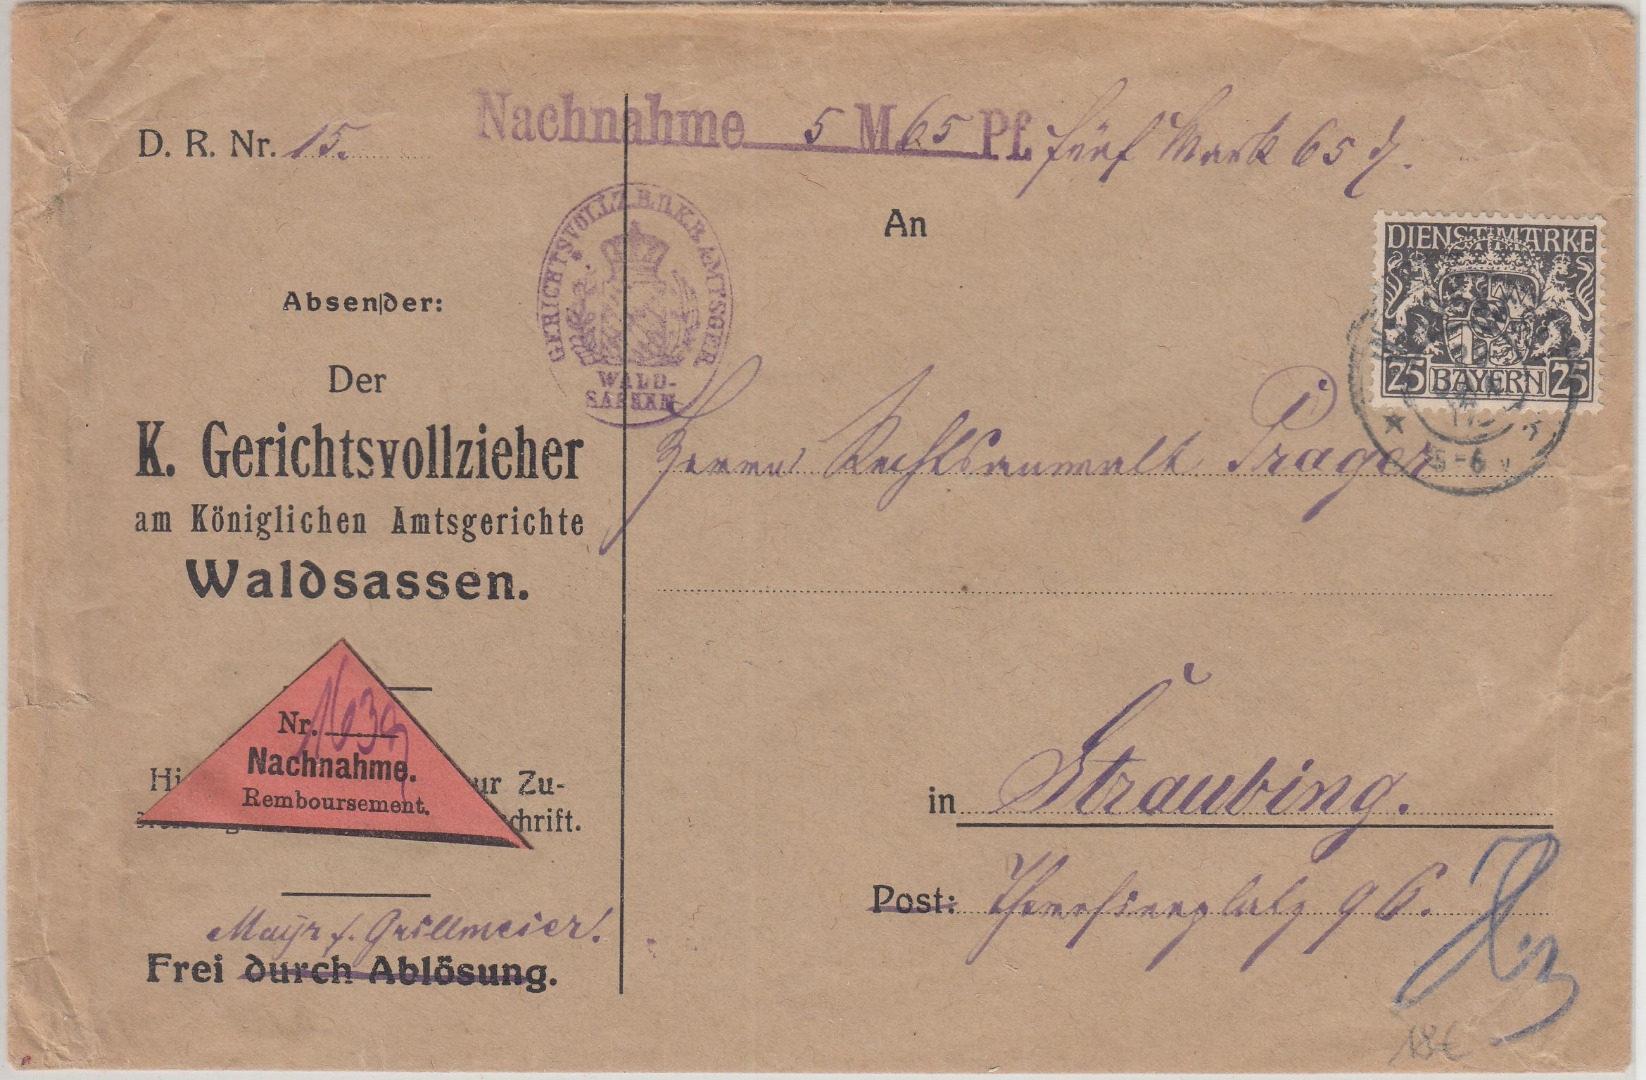 D. R. Nr. 15.
Nachnahme 5 M 65 Pf. fünf Mark 65 ₰.
An
GERICHTSVOLLZ. B. D. K. B. AMTSGER
WALD-
SASSEN
DIENSTMARKE
25 BAYERN 25
5-6
Absender:
Der
K. Gerichtsvollzieher
am Königlichen Amtsgerichte
Waldsassen.
Herrn Rechtsanwalt Prager
Nr.
Nachnahme.
Remboursement.
Hi ur Zu-
chrift.
in Straubing.
Post: Theresienplatz 96.
Mayr /. Grillmeier!
Frei durch Ablösung.
18€